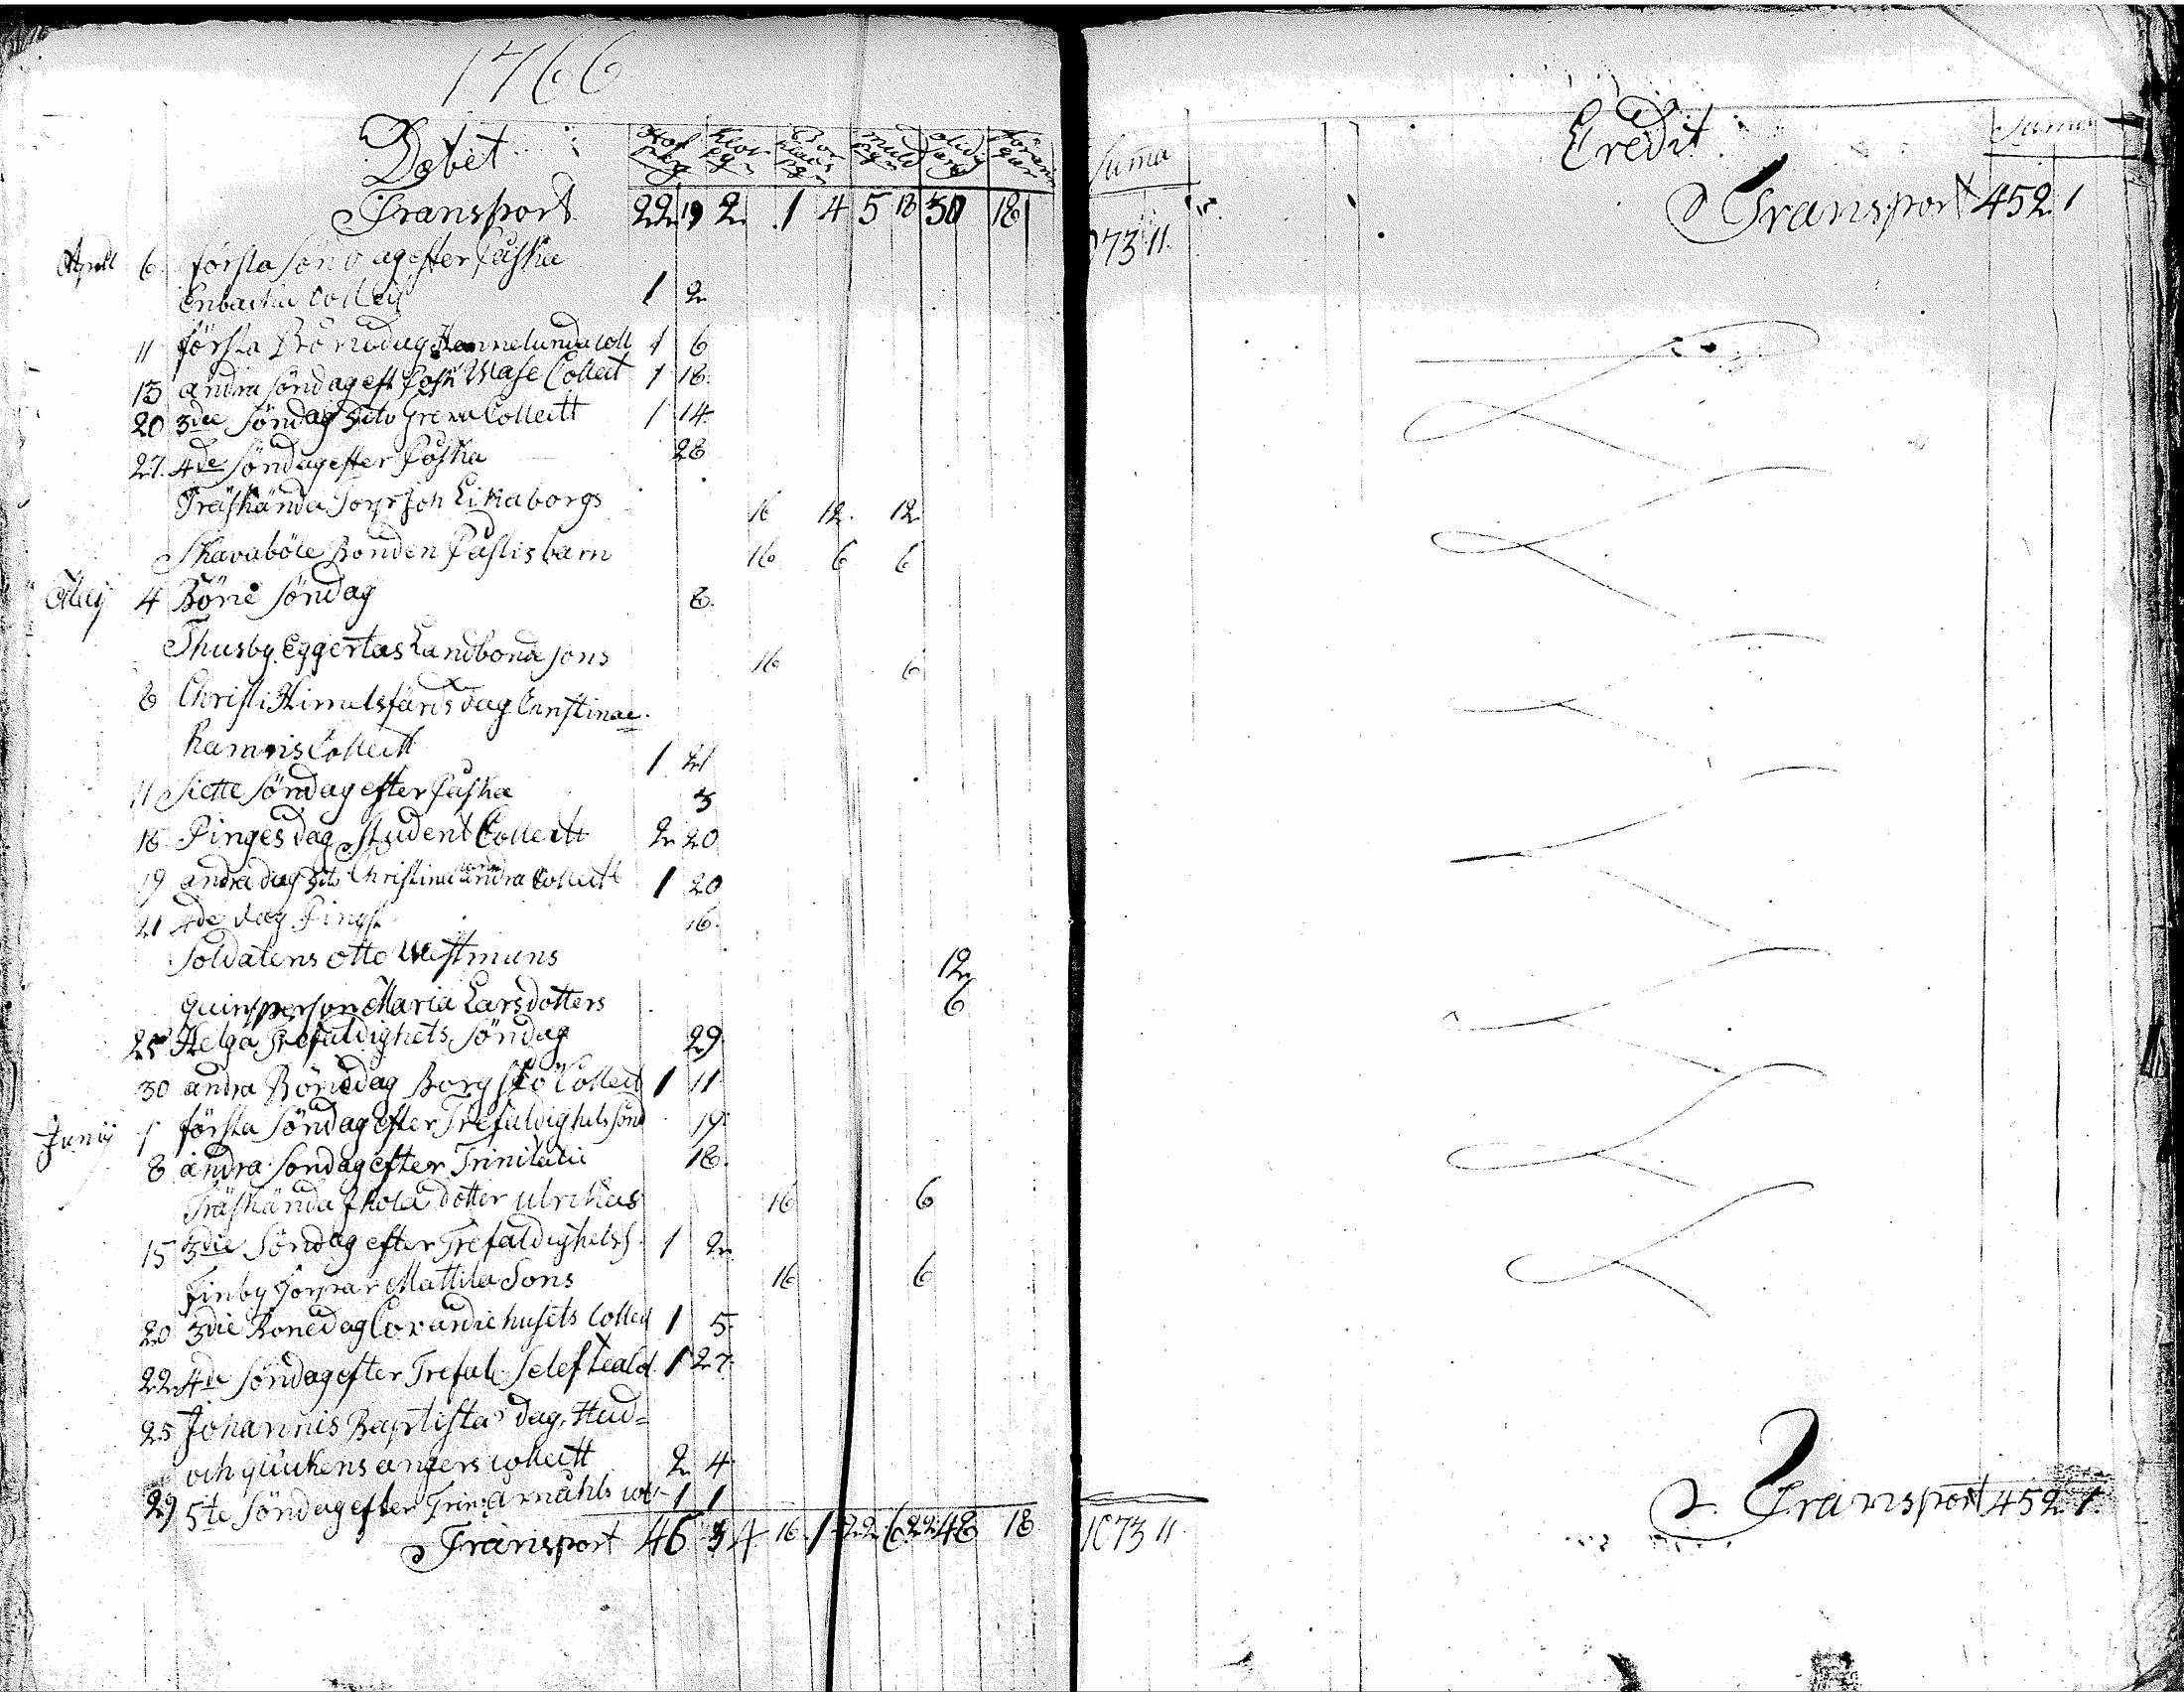 1766
Debet
Transport 22 19 2 1 4 5 18 30 18
Suma
1073 11
Aprill 6 första Söndag efter Påska
Enbacka Collect 1 2
11 första Bönedag Hammelunda Coll 1 6
13 andra Söndag eft Påsk Wasa Collect 1 18
20 3die Söndag Dito Grenna Collectt 1 14
27 4de Söndag efter Påska 28
Träskända Torp Joh Likaborgs 16 12 12
Skavaböle Bonden Påflis barn 16 6 6
Maij 4 Böne Söndag 8
Thusby Eggertas Landbonda Sons 16 6
8 Christi Himmelsfärds dag Christinæ
hamns Collectt 1 21
11 Siette Söndag efter Påska 3
18 Pinges dag Student Collectt 2 20
19 andra dag Dito Christine andra Collectt 1 20
21 4de dag Pingst 16
Soldatens Otto Westmans 12
quinsperson Maria Larsdotters 6
25 Helga Trefaldighets Söndag 29
30 andra Bönedag Borgstö Collect 1 11
Junij 1 första Söndag efter Trefaldighets Sönd 19
8 andra Söndag efter Trinitatis 18
Träskända Skola dotter Ulrikas 16 6
15 3die Söndag efter Trefaldighets S 1 2
Finby Torpar Mattila Sons 16 6
20 3die Bönedag Cor andie husets Collect 1 5
22 4de Söndag efter Trefal: Selefteald 1 27
25 Johannis Baptista dag, Hud=
och Collectt 2 4
29 5te Söndag efter Trin: 1 1
Transport 46 3 4 16 1 22 6 22 48 18
1073 11
Credit
Suma
Transport 452 1
Transport 452 1